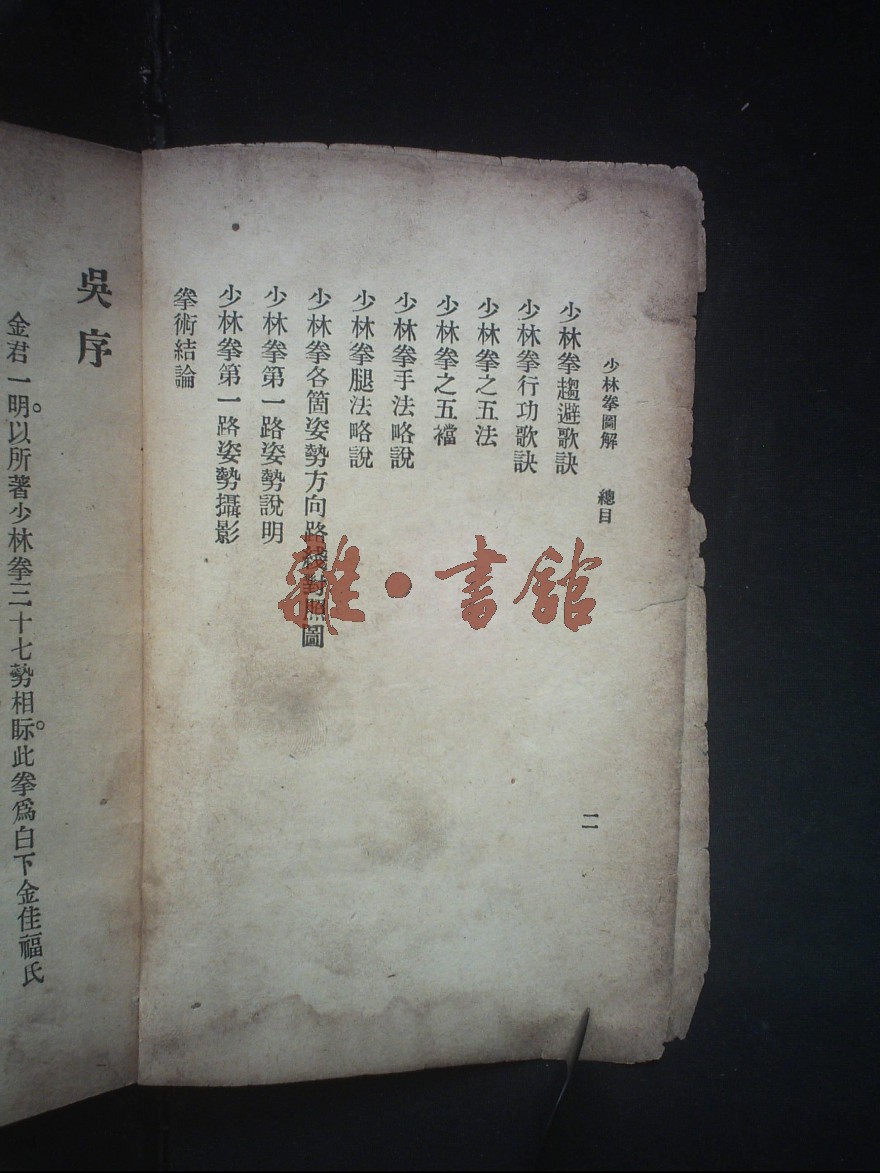 少林拳圖解　總目
二
少林拳趨避歌訣
少林拳行功歌訣
少林拳之五法
少林拳之五襠
少林拳手法略說
少林拳腿法略說
少林拳各箇姿勢方向路綫對照圖
少林拳第一路姿勢說明
少林拳第一路姿勢攝影
拳術結論
吳序
金君一明。以所著少林拳三十七勢相眎。此拳爲白下金佳福氏
雜·書館